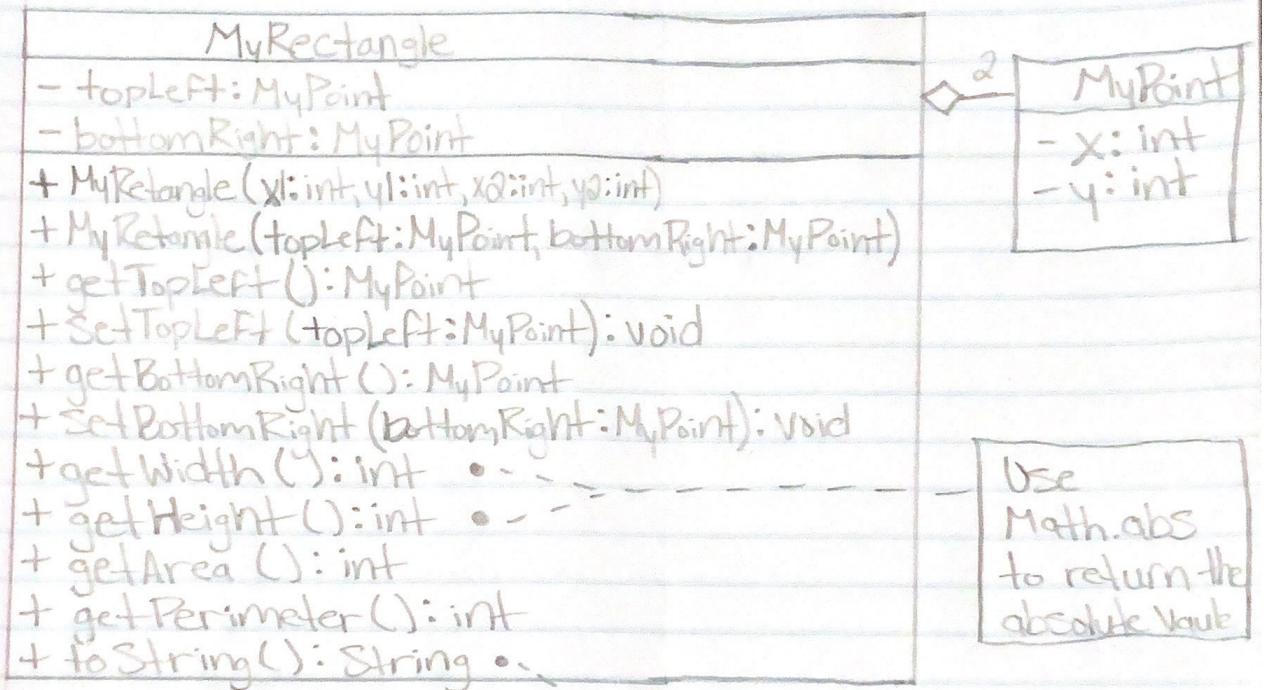 MyRectangle
- topLeft: MyPoint
- bottomRight: MyPoint
+ MyRetangle(x1:int, y1:int, x2:int, y2:int)
+ MyRetangle(topLeft:MyPoint, bottomRight:MyPoint)
+ getTopLeft(): MyPoint
+ setTopLeft(topLeft:MyPoint): void
+ getBottomRight(): MyPoint
+ setBottomRight(bottomRight:MyPoint): void
+ getWidth(): int
+ getHeight(): int
+ getArea(): int
+ getPerimeter(): int
+ toString(): String
2
MyPoint
- x: int
- y: int
Use
Math.abs
to return the
absolute Vaule